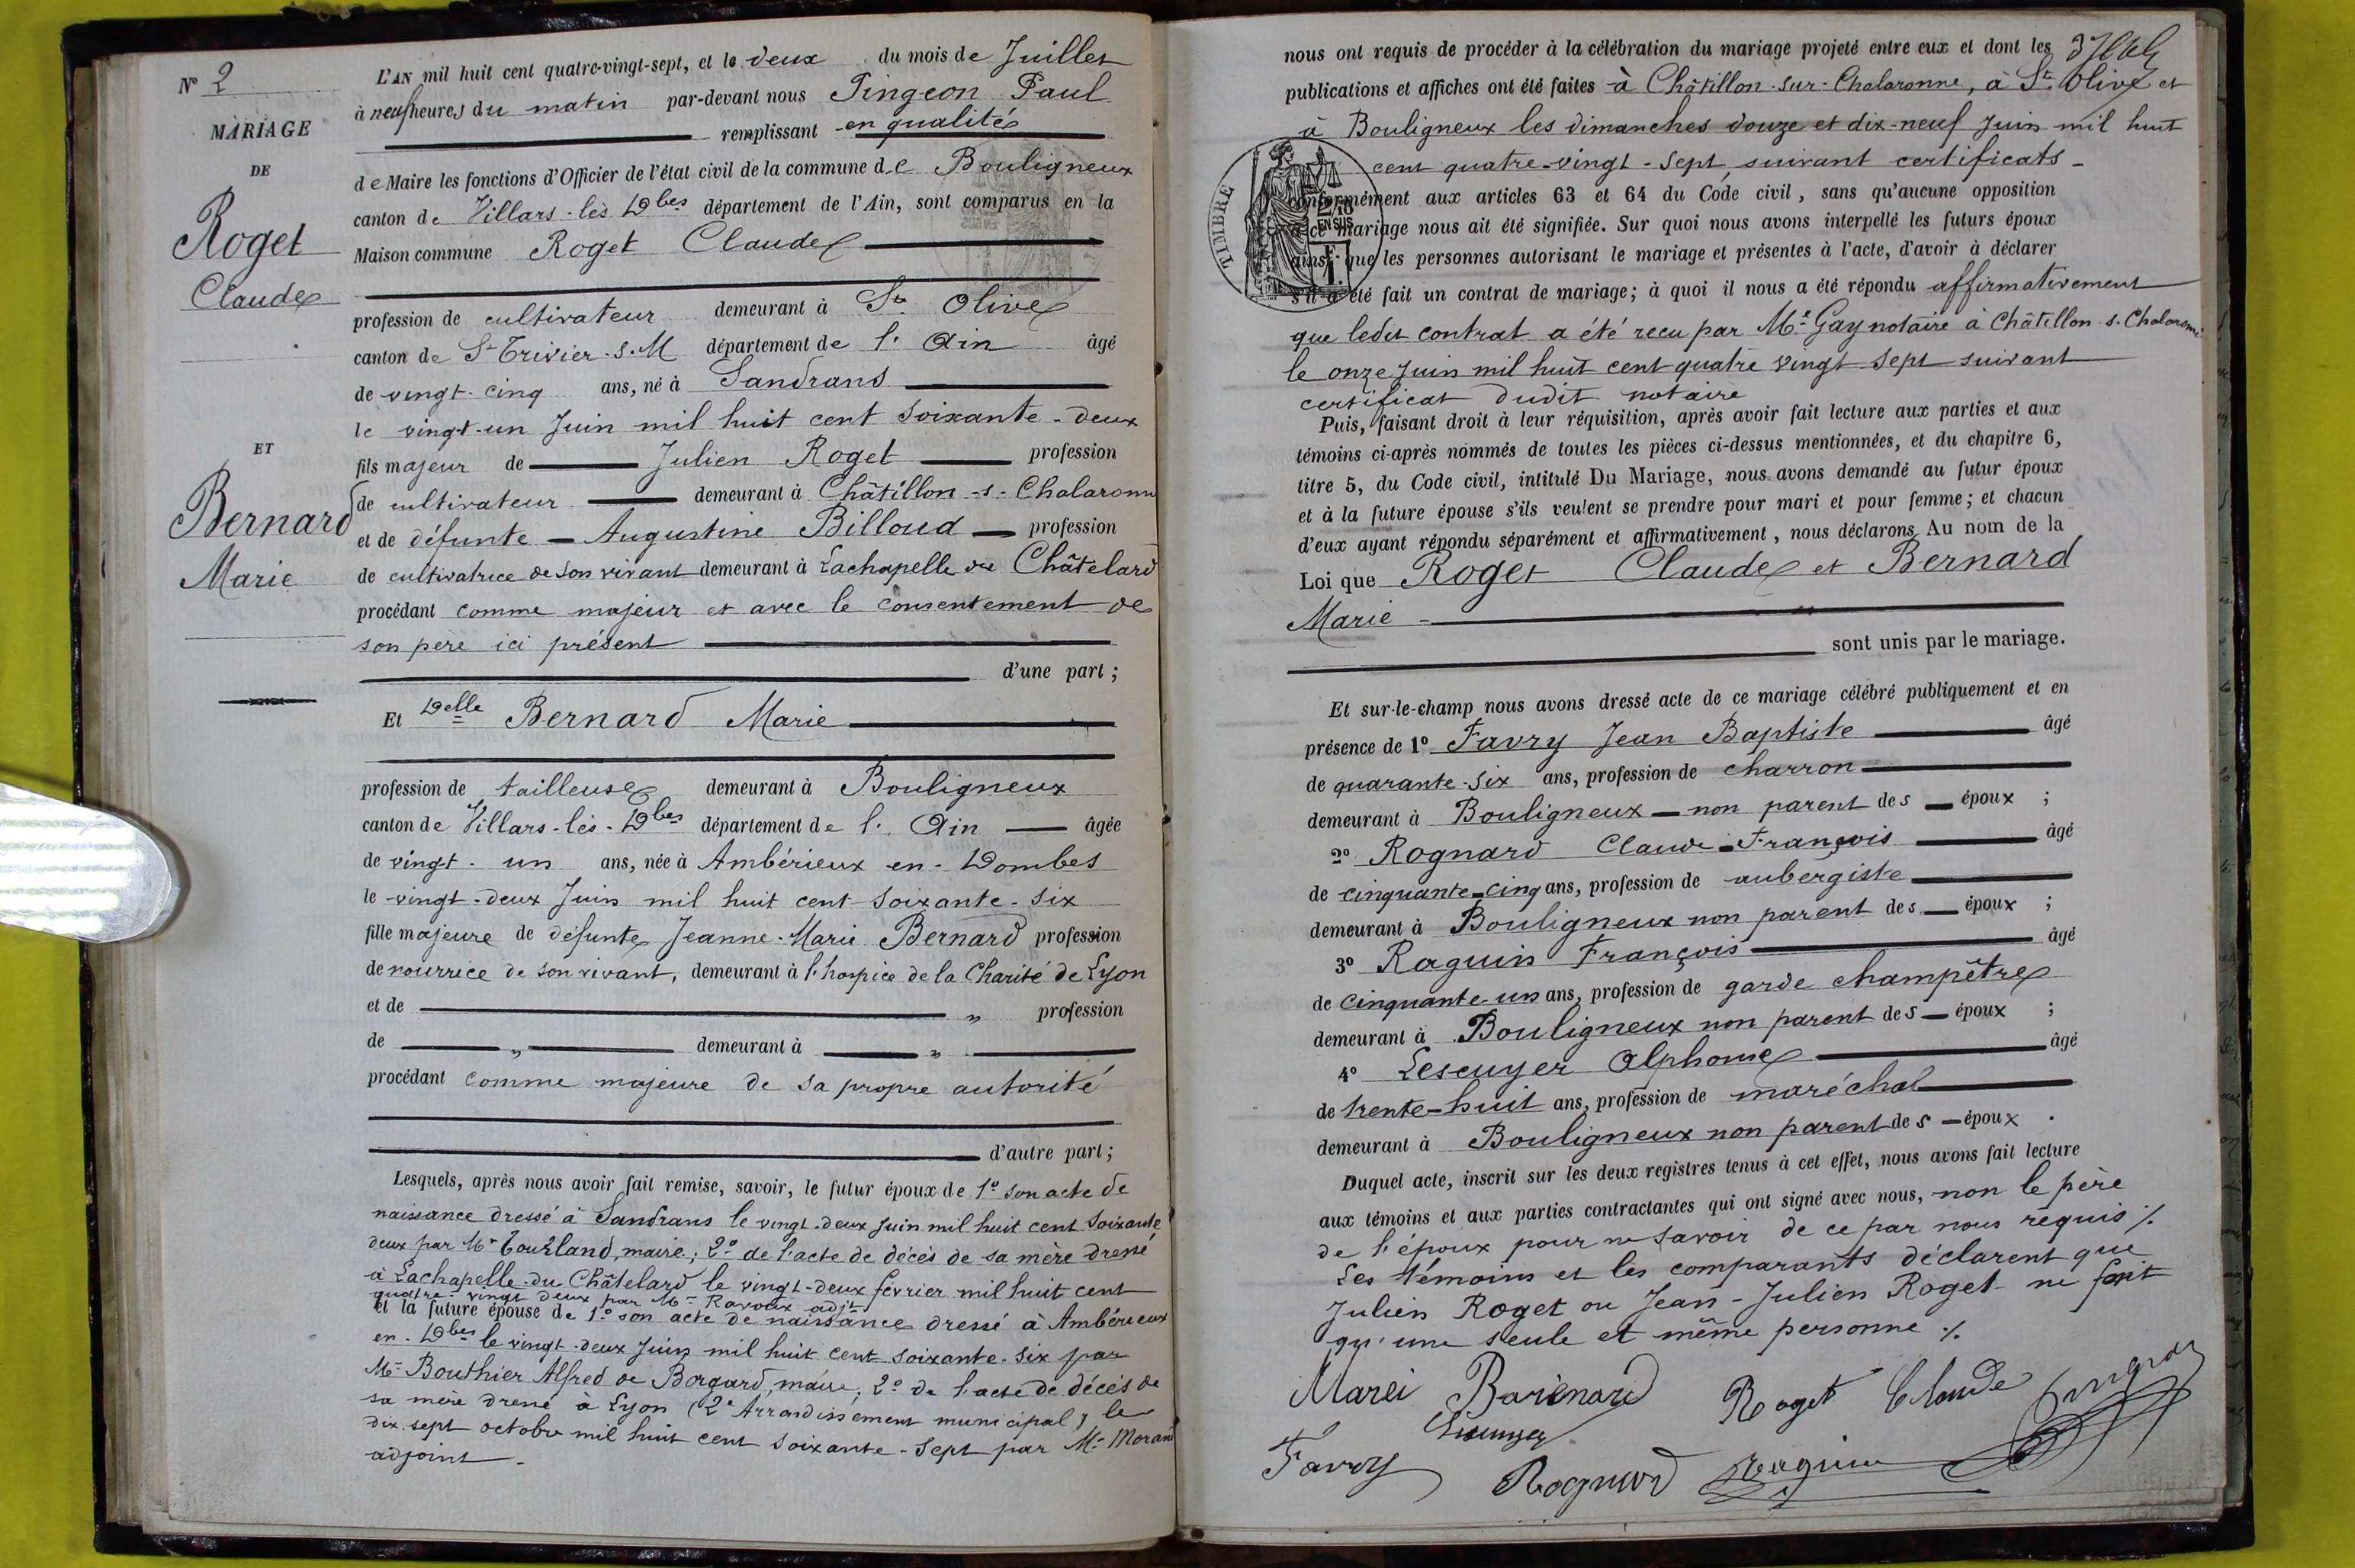 N° 2
MARIAGE
DE
Roget
Claude
ET
Bernard
Marie
L'AN mil huit cent quatre-vingt-sept, et le deux du mois de Juillet
à neuf heures du matin par-devant nous Pingeon Paul
remplissant en qualité
de Maire les fonctions d'Officier de l'état civil de la commune de Bouligneux
canton de Villars-les-Dbes département de l'Ain, sont comparus en la
Maison commune Roget Claude
profession de cultivateur demeurant à Ste Olive
canton de St Trivier-s-M département de l'Ain âgé
de vingt-cinq ans, né à Sandrans
le vingt-un Juin mil huit cent soixante-deux
fils majeur de Julien Roget profession
de cultivateur demeurant à Châtillon-s-Chalaronne
et de défunte Augustine Billoud profession
de cultivatrice de son vivant demeurant à Lachapelle du Châtelard
procédant comme majeur et avec le consentement de
son père ici présent
d'une part ;
Et Delle Bernard Marie
profession de tailleuse demeurant à Bouligneux
canton de Villars-les-Dbes département de l'Ain âgée
de vingt-un ans, née à Ambérieux-en-Dombes
le vingt-deux Juin mil huit cent soixante-six
fille majeure de défunte Jeanne-Marie Bernard profession
de nourrice de son vivant, demeurant à l'hospice de la Charité de Lyon
et de " profession
de " demeurant à "
procédant comme majeure de sa propre autorité
d'autre part ;
Lesquels, après nous avoir fait remise, savoir, le futur époux de 1° son acte de
naissance dressé à Sandrans le vingt-deux Juin mil huit cent soixante
deux par Mr Tourland, maire ; 2° de l'acte de décès de sa mère dressé
à Lachapelle-du-Châtelard le vingt-deux février mil huit cent
quatre-vingt deux par Mr Ravoux adjt
et la future épouse de 1° son acte de naissance dressé à Ambérieux
en-Dbes le vingt-deux Juin mil huit cent soixante-six par
Mr Bouthier Alfred de Borgard, maire ; 2° de l'acte de décès de
sa mère dressé à Lyon (2e Arrondissement municipal) le
dix sept octobre mil huit cent soixante-sept par Mr Morand
adjoint
nous ont requis de procéder à la célébration du mariage projeté entre eux et dont les
publications et affiches ont été faites à Châtillon-sur-Chalaronne, à Ste Olive et
à Bouligneux les dimanches douze et dix-neuf Juin mil huit
cent quatre-vingt-sept, suivant certificats
TIMBRE
2/10
EN SUS
conformément aux articles 63 et 64 du Code civil, sans qu'aucune opposition
à ce mariage nous ait été signifiée. Sur quoi nous avons interpellé les futurs époux
ainsi que les personnes autorisant le mariage et présentes à l'acte, d'avoir à déclarer
s'il a été fait un contrat de mariage ; à quoi il nous a été répondu affirmativement
que ledit contrat a été reçu par Me Gay notaire à Châtillon-s-Chalaronne
le onze Juin mil huit cent quatre vingt sept suivant
certificat dudit notaire
Puis, faisant droit à leur réquisition, après avoir fait lecture aux parties et aux
témoins ci-après nommés de toutes les pièces ci-dessus mentionnées, et du chapitre 6,
titre 5, du Code civil, intitulé Du Mariage, nous avons demandé au futur époux
et à la future épouse s'ils veulent se prendre pour mari et pour femme ; et chacun
d'eux ayant répondu séparément et affirmativement, nous déclarons Au nom de la
Loi que Roget Claude et Bernard
Marie
sont unis par le mariage.
Et sur-le-champ nous avons dressé acte de ce mariage célébré publiquement et en
présence de 1° Favry Jean Baptiste âgé
de quarante-six ans, profession de charron
demeurant à Bouligneux non parent des époux ;
2° Rognard Claude-François âgé
de cinquante-cinq ans, profession de aubergiste
demeurant à Bouligneux non parent des époux ;
3° Raguin François âgé
de cinquante-un ans, profession de garde champêtre
demeurant à Bouligneux non parent des époux ;
4° Lescuyer Alphonse âgé
de trente-huit ans, profession de maréchal
demeurant à Bouligneux non parent des époux .
Duquel acte, inscrit sur les deux registres tenus à cet effet, nous avons fait lecture
aux témoins et aux parties contractantes qui ont signé avec nous, non le père
de l'époux pour ne savoir de ce par nous requis ./.
Les témoins et les comparants déclarent que
Julien Roget ou Jean-Julien Roget ne font
qu'une seule et même personne ./.
Marei Barenard Roget Claude Pingeon
Lescuyer
Favry Rognard Raguin